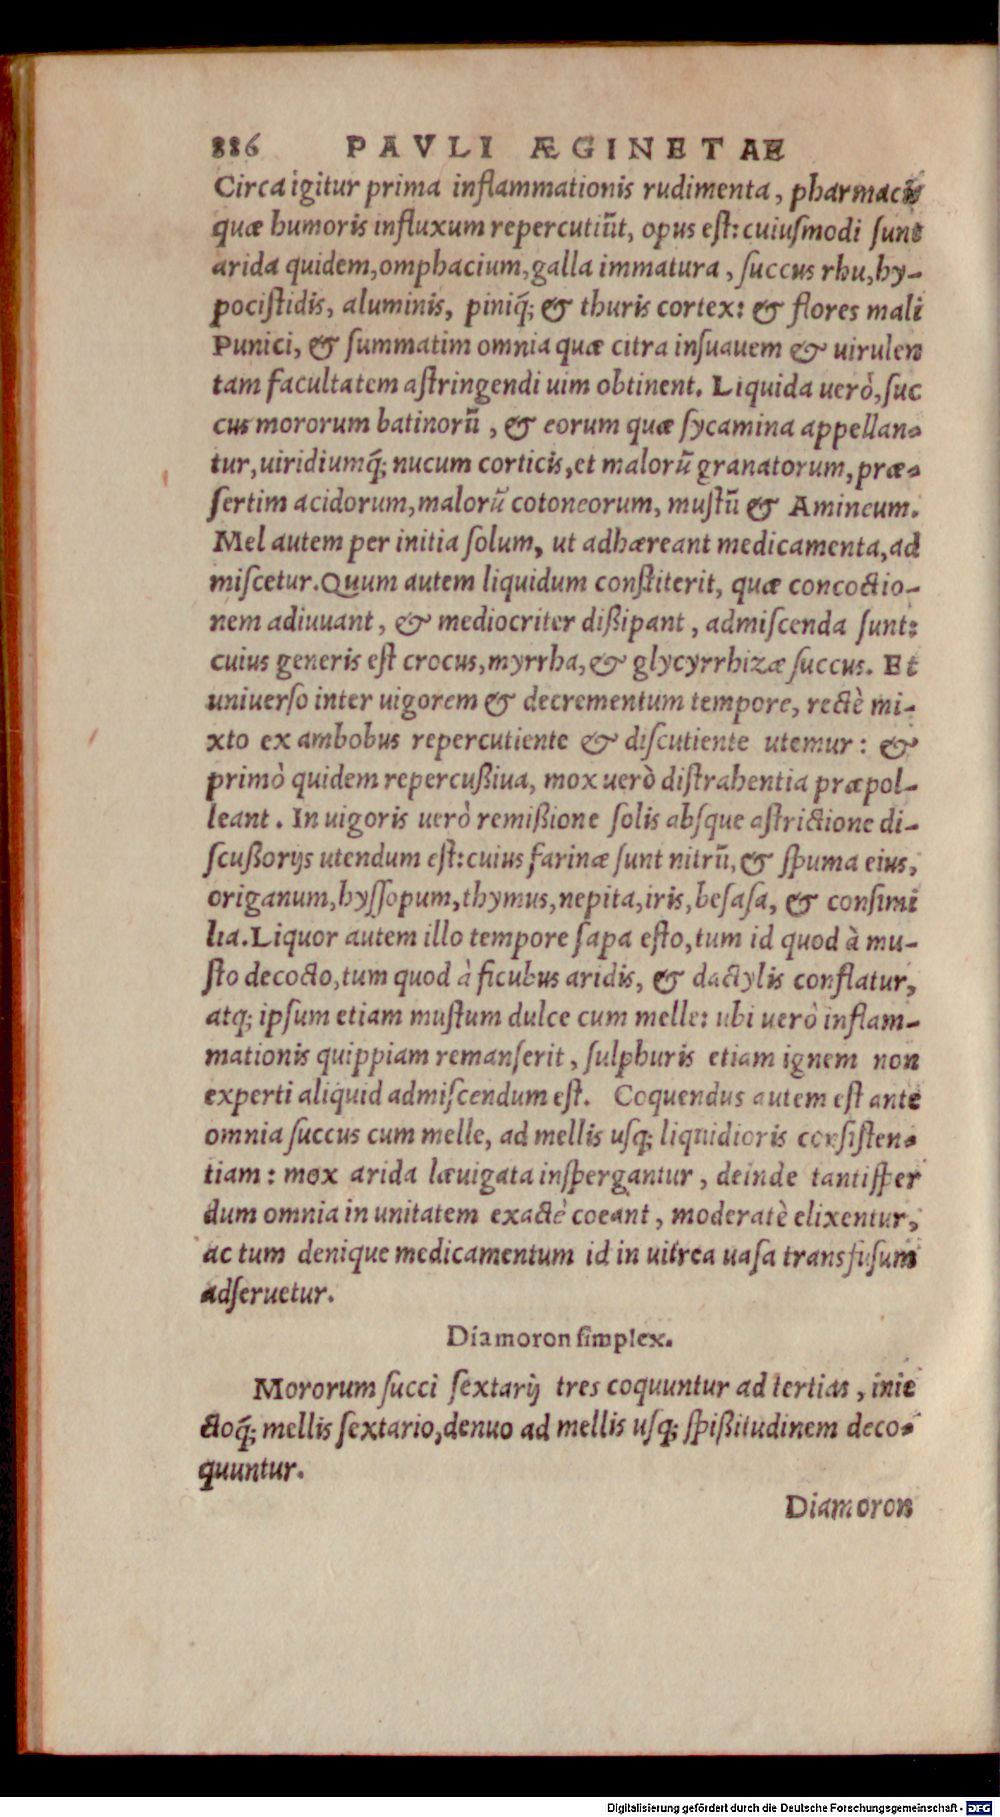 886 PAVLI ÆGINETAE
Circa igitur prima inflammationis rudimenta, pharmacis
quæ humoris influxum repercutiũt, opus est: cuiusmodi sunt
arida quidem, omphacium, galla immatura, succus rhu, hy-
pocistidis, aluminis, piniq́; & thuris cortex: & flores mali
Punici, & summatim omnia quæ citra insuauem & uirulen
tam facultatem astringendi uim obtinent. Liquida uerò, suc
cus mororum batinorũ, & eorum quæ sycamina appellan-
tur, uiridiumq́; nucum corticis, et malorũ granatorum, præ-
sertim acidorum, malorũ cotoneorum, mustũ & Amineum.
Mel autem per initia solum, ut adhæreant medicamenta, ad
miscetur. Quum autem liquidum constiterit, quæ concoctio-
nem adiuuant, & mediocriter dißipant, admiscenda sunt:
cuius generis est crocus, myrrha, & glycyrrhizæ succus. Et
uniuerso inter uigorem & decrementum tempore, rectè mi-
xto ex ambobus repercutiente & discutiente utemur: &
primò quidem repercußiua, mox uerò distrahentia præpol-
leant. In uigoris uerò remißione solis absque astrictione di-
scußorijs utendum est: cuius farinæ sunt nitrũ, & spuma eius,
origanum, hyssopum, thymus, nepita, iris, besasa, & consimi
lia. Liquor autem illo tempore sapa esto, tum id quod à mu-
sto decocto, tum quod à ficubus aridis, & dactylis conflatur,
atq; ipsum etiam mustum dulce cum melle: ubi uerò inflam-
mationis quippiam remanserit, sulphuris etiam ignem non
experti aliquid admiscendum est. Coquendus autem est ante
omnia succus cum melle, ad mellis usq; liquidioris consisten-
tiam: mox arida læuigata inspergantur, deinde tantisper
dum omnia in unitatem exactè coeant, moderatè elixentur,
ac tum denique medicamentum id in uitrea uasa transfusum
adseruetur.
Diamoron simplex.
Mororum succi sextarij tres coquuntur ad tertias, inie
ctoq́; mellis sextario, denuo ad mellis usq; spißitudinem deco-
quuntur.
Diamoron
Digitalisierung gefördert durch die Deutsche Forschungsgemeinschaft - DFG